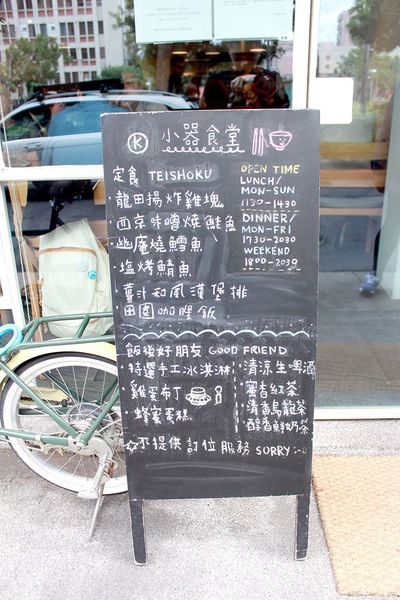 K 小器食堂
定食 TEISHOKU
・龍田揚炸雞塊
・西京味噌燒鮭魚
・幽庵燒鱈魚
・塩烤鯖魚
・薑汁和風漢堡排
・田園咖哩飯
OPEN TIME
LUNCH/
MON-SUN
1130-1430
DINNER/
MON-FRI
1730-2030
WEEKEND
1800-2030
飯後好朋友 GOOD FRIEND
・特選手工冰淇淋
・雞蛋布丁
・蜂蜜蛋糕
・清涼生啤酒
・蜜香紅茶
・清香烏龍茶
・醇香鮮奶茶
☆不提供訂位服務 SORRY:-)